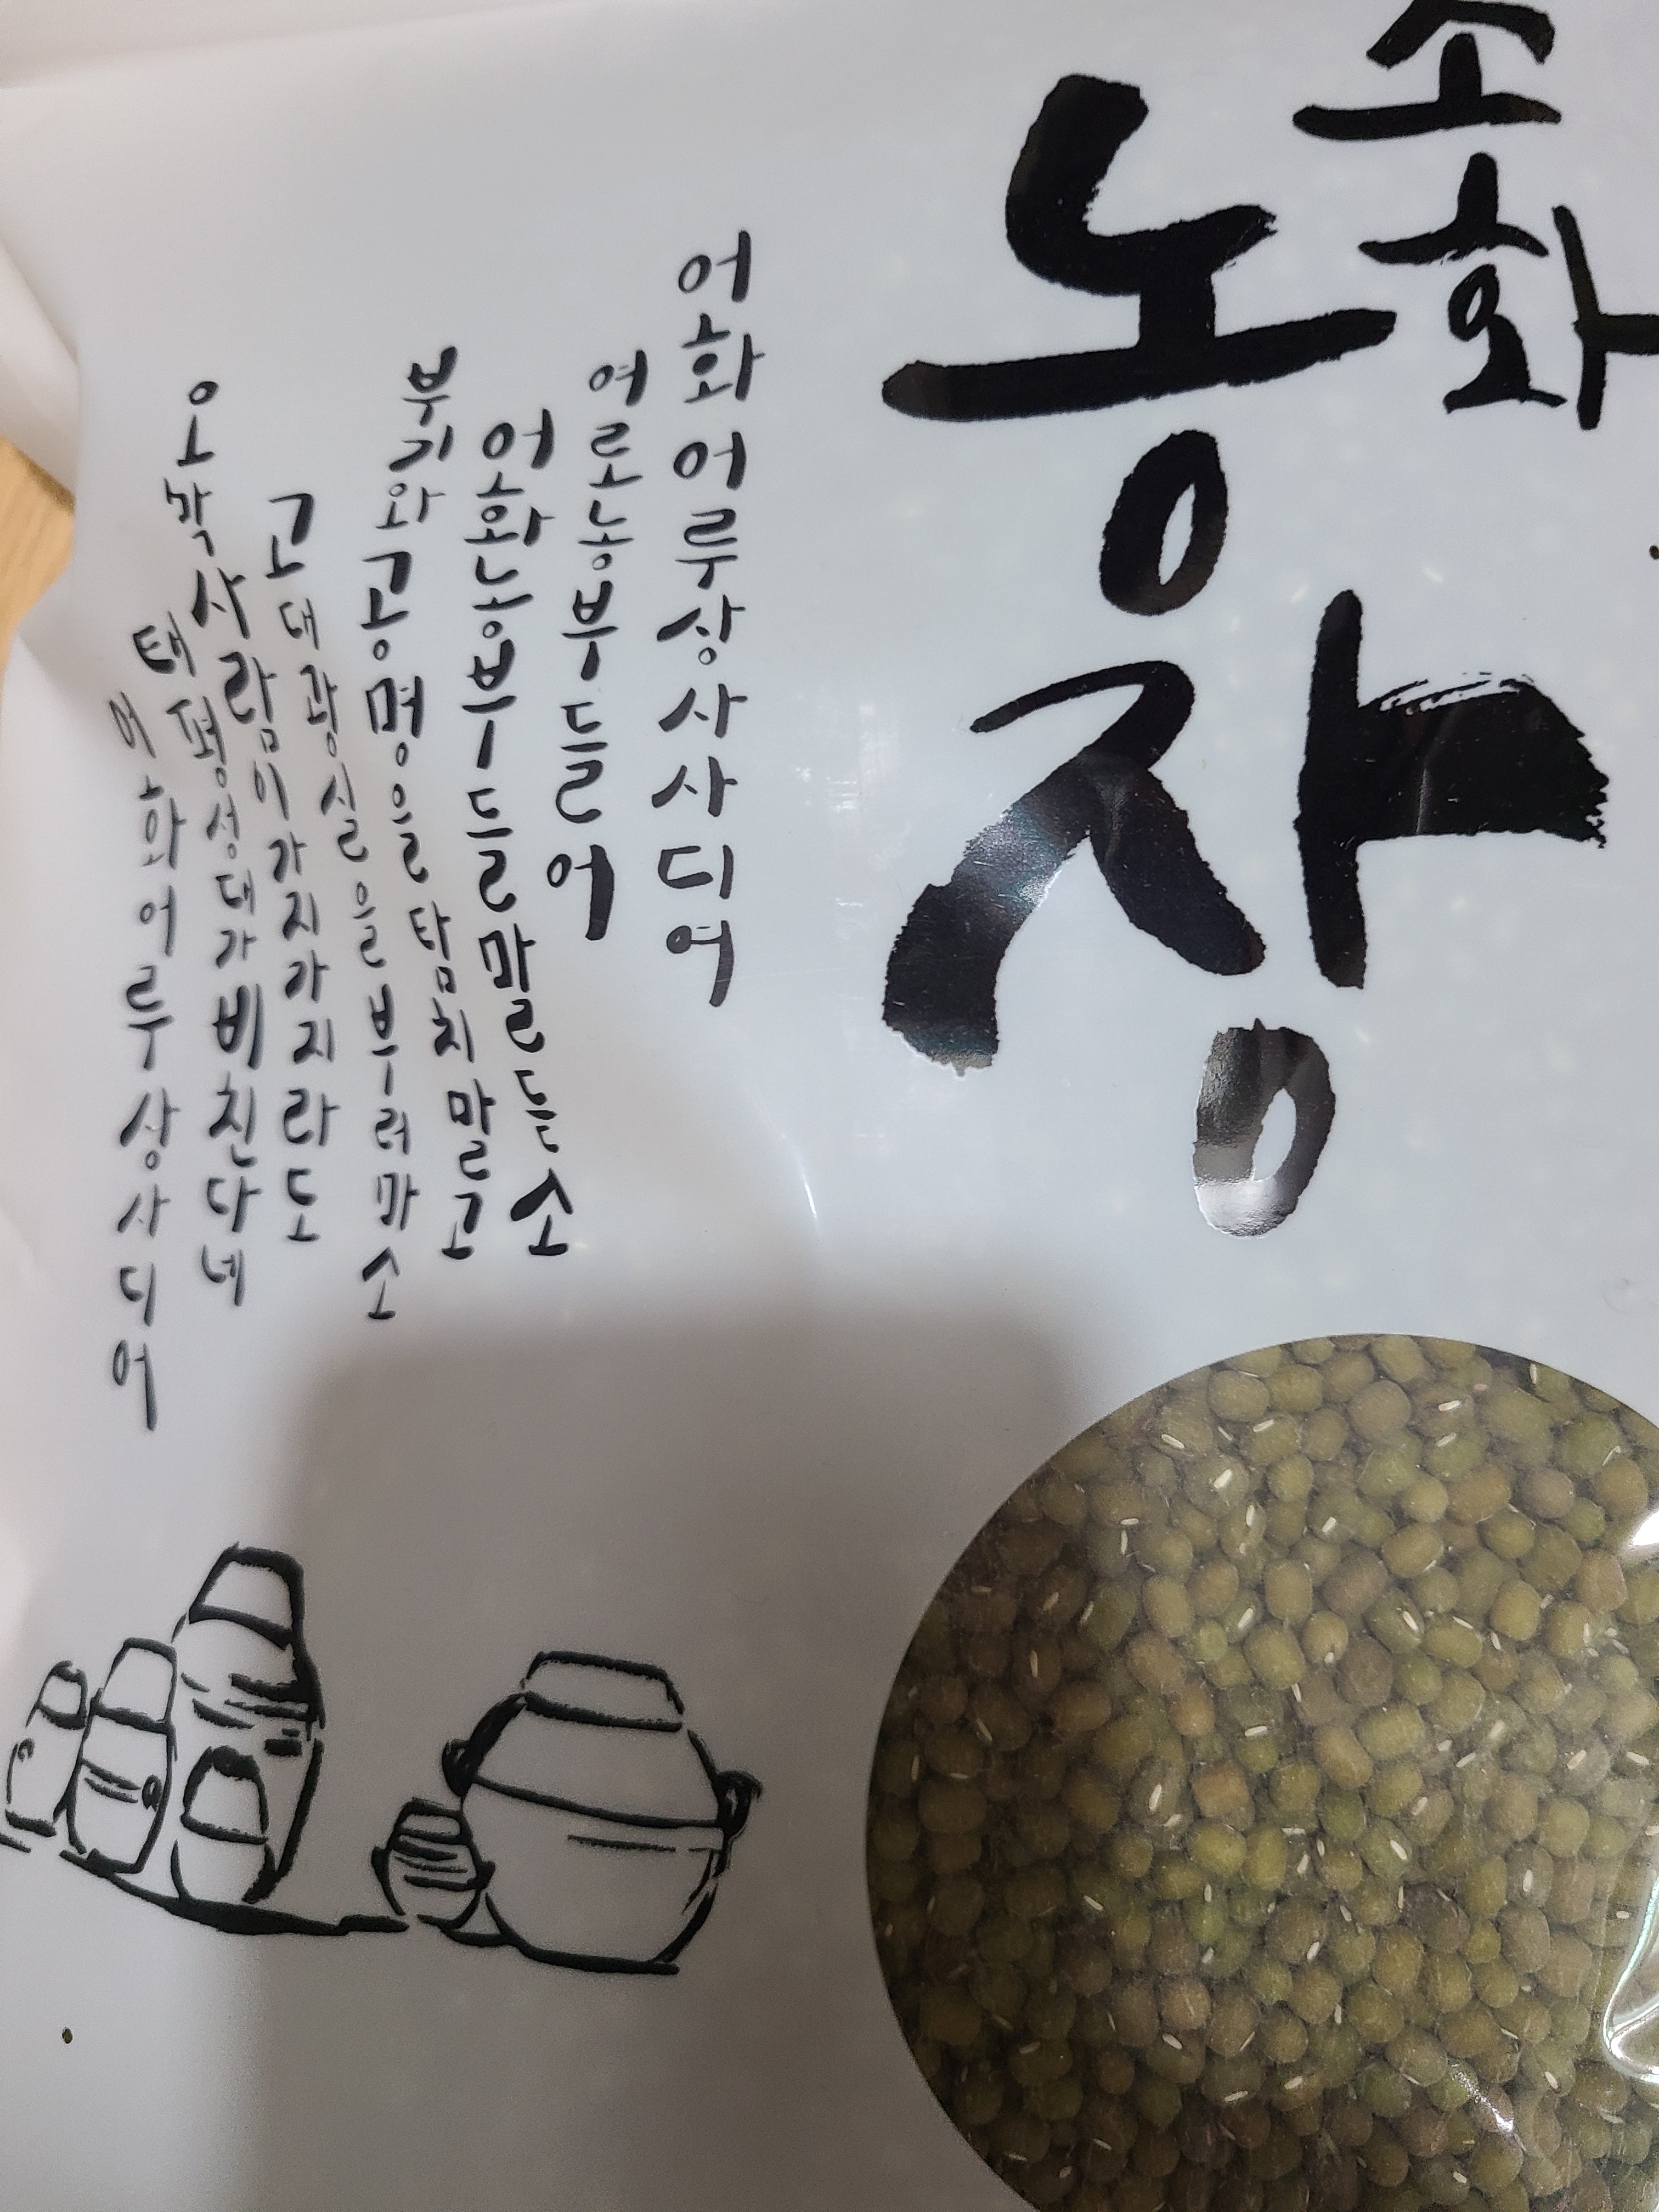 소화
농장
어화어루상사사디여
여로농부들어
어화농부들말듣소
부기와공명을탐치말고
고대광실을부러마소
오각사람이가지가지라도
태평성대가비친다네
어화어루상사디여